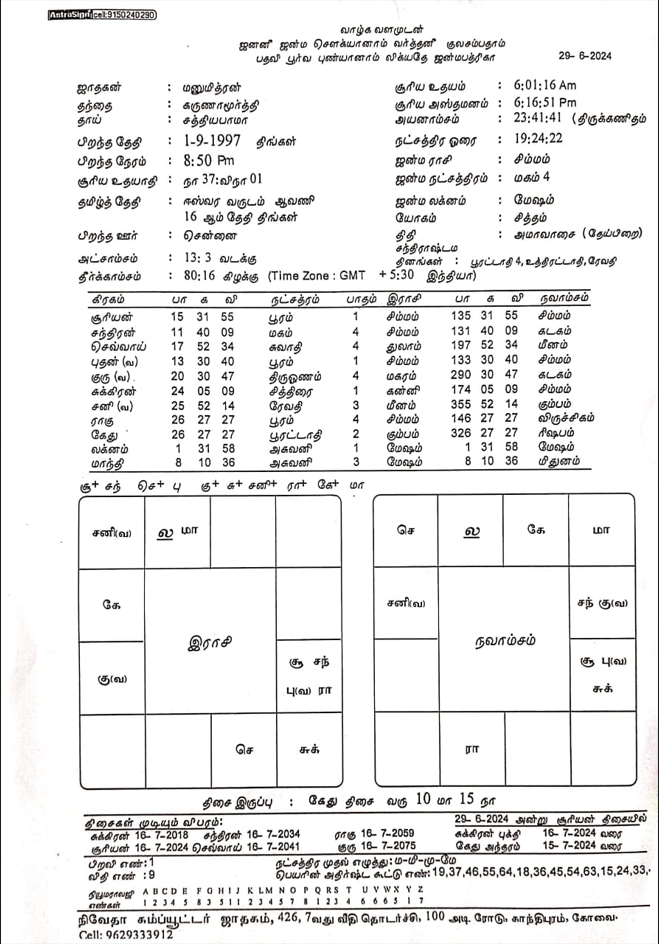 AstroSign cell:9150240290
வாழ்க வளமுடன்
ஜனனீ ஜன்ம சௌக்யானாம் வர்த்தனீ குலசம்பதாம்
பதவி பூர்வ புண்யானாம் லிக்யதே ஜன்மபத்ரிகா 29- 6-2024
ஜாதகன் : மனுமித்ரன் சூரிய உதயம் : 6:01:16 Am
தந்தை : கருணாமூர்த்தி சூரிய அஸ்தமனம் : 6:16:51 Pm
தாய் : சத்தியபாமா அயனாம்சம் : 23:41:41 (திருக்கணிதம்
பிறந்த தேதி : 1-9-1997 திங்கள் நட்சத்திர ஓரை : 19:24:22
பிறந்த நேரம் : 8:50 Pm ஜன்ம ராசி : சிம்மம்
சூரிய உதயாதி : நா 37:விநா 01 ஜன்ம நட்சத்திரம் : மகம் 4
தமிழ்த் தேதி : ஈஸ்வர வருடம் ஆவணி ஜன்ம லக்னம் : மேஷம்
16 ஆம் தேதி திங்கள் யோகம் : சித்தம்
பிறந்த ஊர் : சென்னை திதி : அமாவாசை (தேய்பிறை)
அட்சாம்சம் : 13: 3 வடக்கு சந்திராஷ்டம தினங்கள் : பூரட்டாதி 4, உத்திரட்டாதி, ரேவதி
தீர்க்காம்சம் : 80:16 கிழக்கு (Time Zone : GMT +5:30 இந்தியா)
கிரகம் பா க வி நட்சத்ரம் பாதம் இராசி பா க வி நவாம்சம்
சூரியன் 15 31 55 பூரம் 1 சிம்மம் 135 31 55 சிம்மம்
சந்திரன் 11 40 09 மகம் 4 சிம்மம் 131 40 09 கடகம்
செவ்வாய் 17 52 34 சுவாதி 4 துலாம் 197 52 34 மீனம்
புதன் (வ) 13 30 40 பூரம் 1 சிம்மம் 133 30 40 சிம்மம்
குரு (வ) 20 30 47 திருஓணம் 4 மகரம் 290 30 47 கடகம்
சுக்கிரன் 24 05 09 சித்திரை 1 கன்னி 174 05 09 சிம்மம்
சனி (வ) 25 52 14 ரேவதி 3 மீனம் 355 52 14 கும்பம்
ராகு 26 27 27 பூரம் 4 சிம்மம் 146 27 27 விருச்சிகம்
கேது 26 27 27 பூரட்டாதி 2 கும்பம் 326 27 27 ரிஷபம்
லக்னம் 1 31 58 அசுவனி 1 மேஷம் 1 31 58 மேஷம்
மாந்தி 8 10 36 அசுவனி 3 மேஷம் 8 10 36 மிதுனம்
சூ+ சந் செ+ பு கு+ சு+ சனி+ ரா+ கே+ மா
சனி(வ) ல மா செ ல கே மா
கே சனி(வ) சந் கு(வ)
இராசி நவாம்சம்
கு(வ) சூ சந் சூ பு(வ)
பு(வ) ரா சுக்
செ சுக் ரா
திசை இருப்பு : கேது திசை வரு 10 மா 15 நா
திசைகள் முடியும் விபரம்: 29- 6-2024 அன்று சூரியன் திசையில்
சுக்கிரன் 16- 7-2018 சந்திரன் 16- 7-2034 ராகு 16- 7-2059 சுக்கிரன் புக்தி 16- 7-2024 வரை
சூரியன் 16- 7-2024 செவ்வாய் 16- 7-2041 குரு 16- 7-2075 கேது அந்தரம் 15- 7-2024 வரை
பிறவி எண்:1 நட்சத்திர முதல் எழுத்து:ம-மி-மு-மே
விதி எண் :9 பெயரின் அதிர்ஷ்ட கூட்டு எண்:19,37,46,55,64,18,36,45,54,63,15,24,33,
நியூமராலஜி A B C D E F G H I J K L M N O P Q R S T U V W X Y Z
எண்கள் 1 2 3 4 5 8 3 5 1 1 2 3 4 5 7 8 1 2 3 4 6 6 6 5 1 7
நிவேதா கம்ப்யூட்டர் ஜாதகம், 426, 7வது வீதி தொடர்ச்சி, 100 அடி ரோடு, காந்திபுரம், கோவை.
Cell: 9629333912